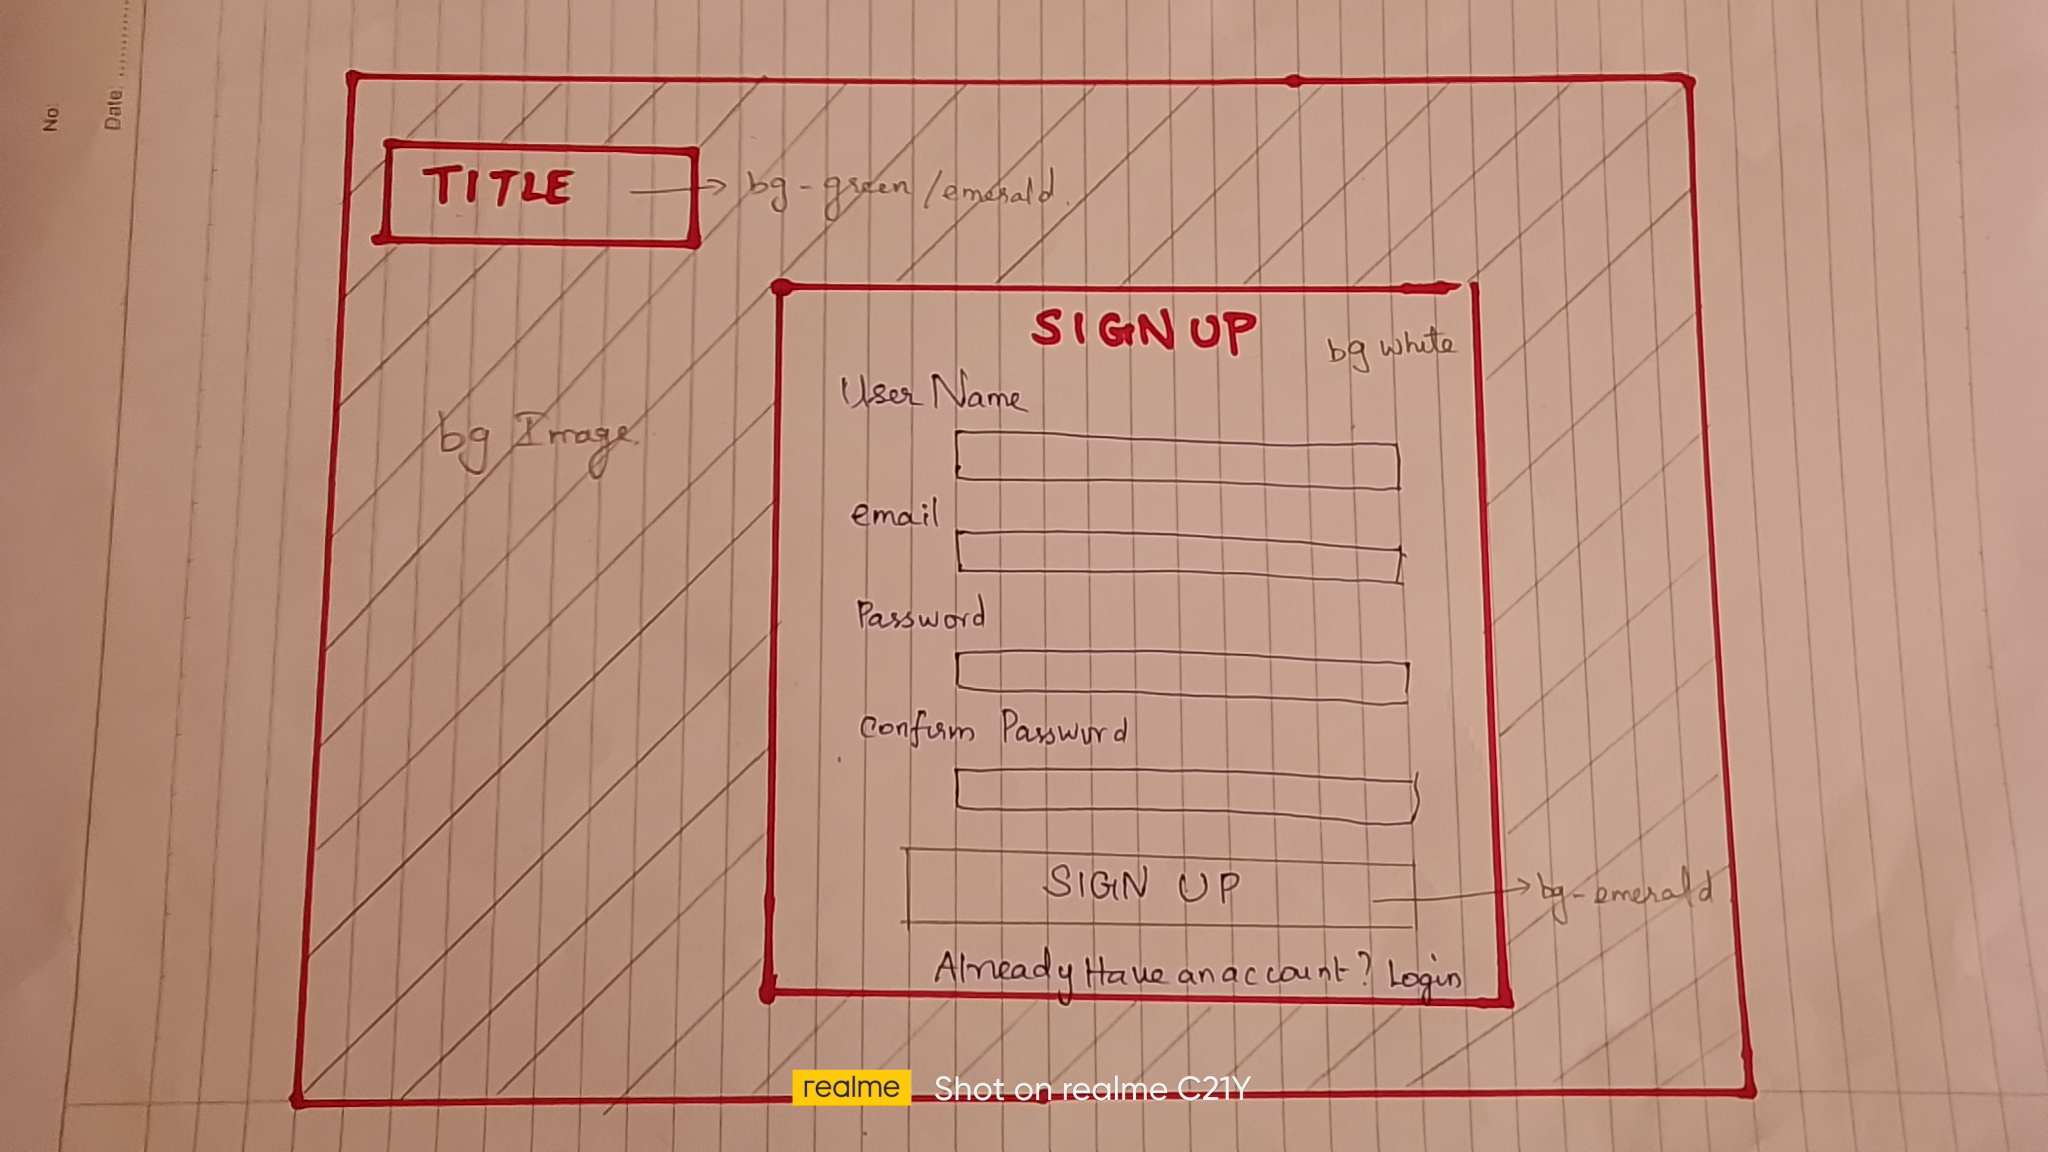 No:
Date:
TITLE
bg-green/emerald.
SIGN UP
bg white
User Name
bg Image.
email
Password
Confirm Password
SIGN UP
bg-emerald
Already Have an account? Login
realme Shot on realme C21Y